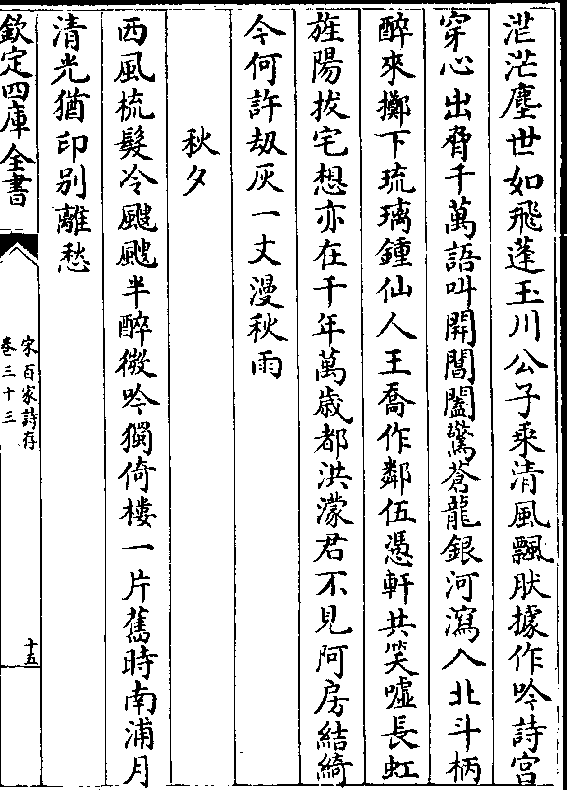 茫茫塵世如飛蓬玉川公子乘清風飄肰據作吟詩宫
穿心出脅千萬語叫開閶闔驚蒼龍銀河瀉入北斗柄
醉來擲下琉璃鍾仙人王喬作鄰伍憑軒共笑噓長虹
旌陽拔宅想亦在千年萬歲都洪濛君不見阿房結綺
今何許刼灰一丈漫秋雨
秋夕
西風梳髮冷颼颼半醉微吟獨倚樓一片舊時南浦月
清光猶印别離愁
欽定四庫全書
宋百家詩存
卷三十三
十五